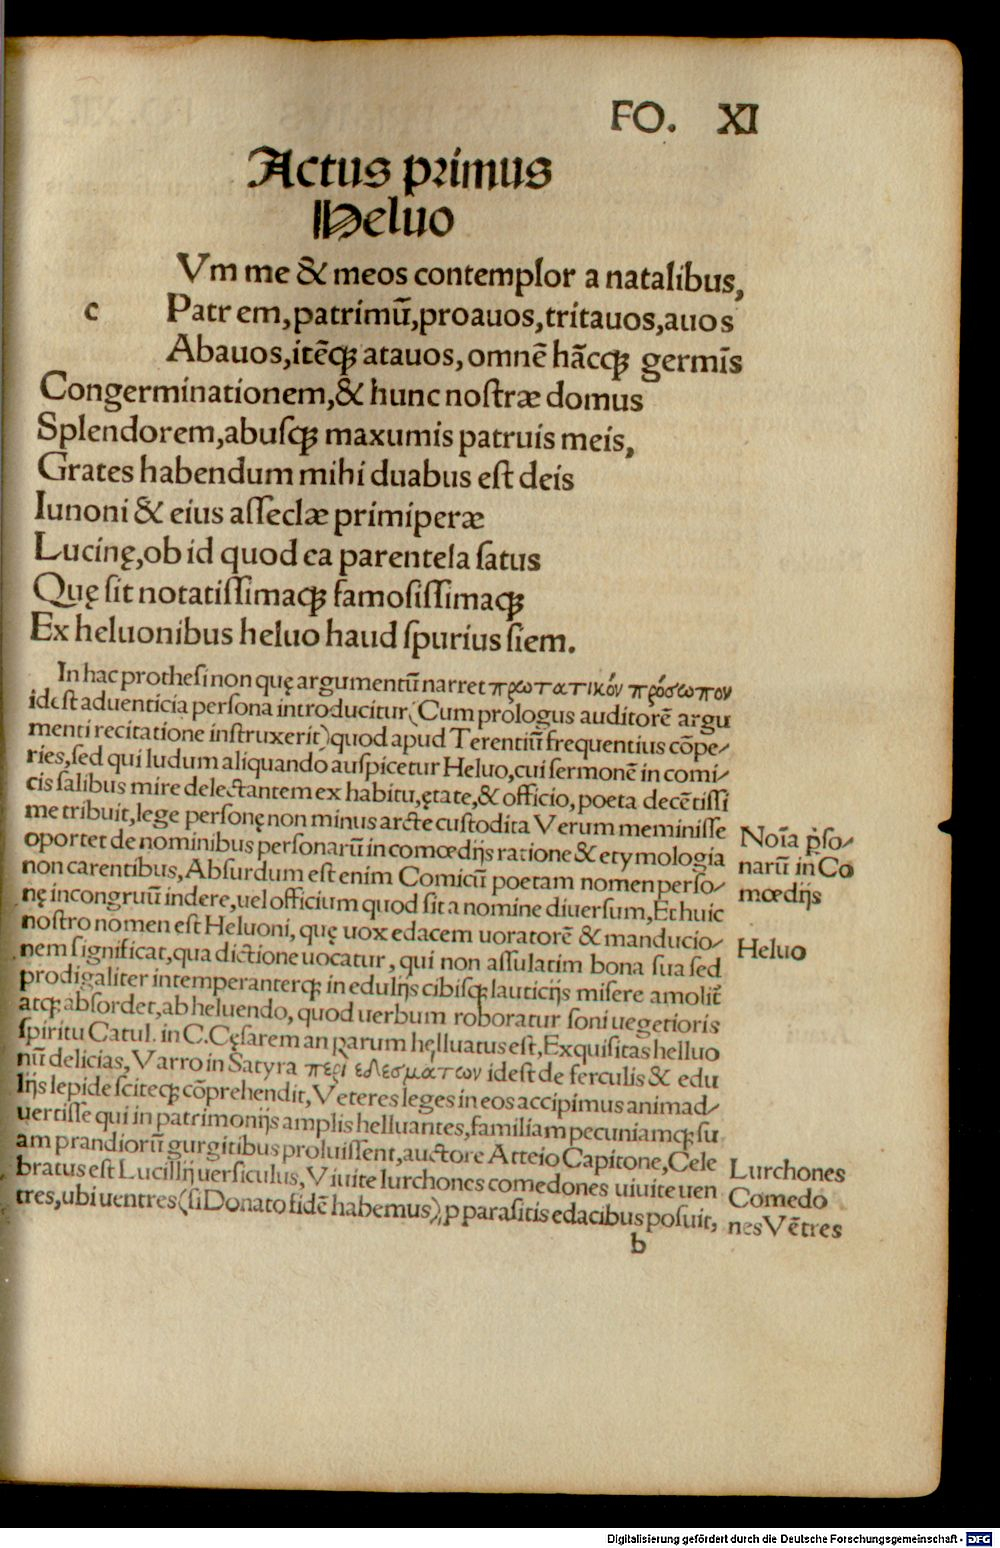 FO. XI
Actus primus
Heluo
Vm me & meos contemplor a natalibus,
c Patrem, patrimū, proauos, tritauos, auos
Abauos, itēqꝫ atauos, omnē hācqꝫ germīs
Congerminationem, & hunc noſtræ domus
Splendorem, abuſqꝫ maxumis patruis meis,
Grates habendum mihi duabus eſt deis
Iunoni & eius aſſeclæ primiperæ
Lucinę, ob id quod ea parentela ſatus
Quę ſit notatiſſimaqꝫ famoſiſſimaqꝫ
Ex heluonibus heluo haud ſpurius ſiem.
In hac protheſi non quę argumentū narret πρωτατικόν πρόσωπον
ideſt aduenticia perſona introducitur (Cum prologus auditorē argu
menti recitatione inſtruxerit) quod apud Terentiū frequentius cōpe-
ries, ſed qui ludum aliquando auſpicetur Heluo, cui ſermonē in comi-
cis ſalibus mire delectantem ex habitu, ętate, & officio, poeta decētiſſi
me tribuit, lege perſonę non minus arcte cuſtodita Verum meminiſſe
oportet de nominibus perſonarū in comœdijs ratione & etymologia
non carentibus, Abſurdum eſt enim Comicū poetam nomen perſo-
nę incongruū indere, uel officium quod ſit a nomine diuerſum, Et huic
noſtro nomen eſt Heluoni, quę uox edacem uoratorē & manducio-
nem ſignificat, qua dictione uocatur, qui non aſſulatim bona ſua ſed
prodigaliter intemperanterqꝫ in edulijs cibiſqꝫ lauticijs miſere amolit̄
atqꝫ abſordet, ab heluendo, quod uerbum roboratur ſoni uegetioris
ſpiritu Catul. in C. Cęſarem an parum helluatus eſt, Exquiſitas helluo
nū delicias, Varro in Satyra περὶ εδεσμάτων ideſt de ferculis & edu
lijs lepide ſciteqꝫ cōprehendit, Veteres leges in eos accipimus animad-
uertiſſe qui in patrimonijs amplis helluantes, familiam pecuniamqꝫ ſu
am prandiorū gurgitibus proluiſſent, auctore Atteio Capitone, Cele
bratus eſt Lucillij uerſiculus, Viuite lurchones comedones uiuite uen
tres, ubi uentres (ſi Donato fidē habemus), ꝓ paraſitis edacibus poſuit,
b
Noīa p̱ſo-
narū in Co
mœdijs
Heluo
Lurchones
Comedo
nes Vētres
Digitalisierung gefördert durch die Deutsche Forschungsgemeinschaft - DFG